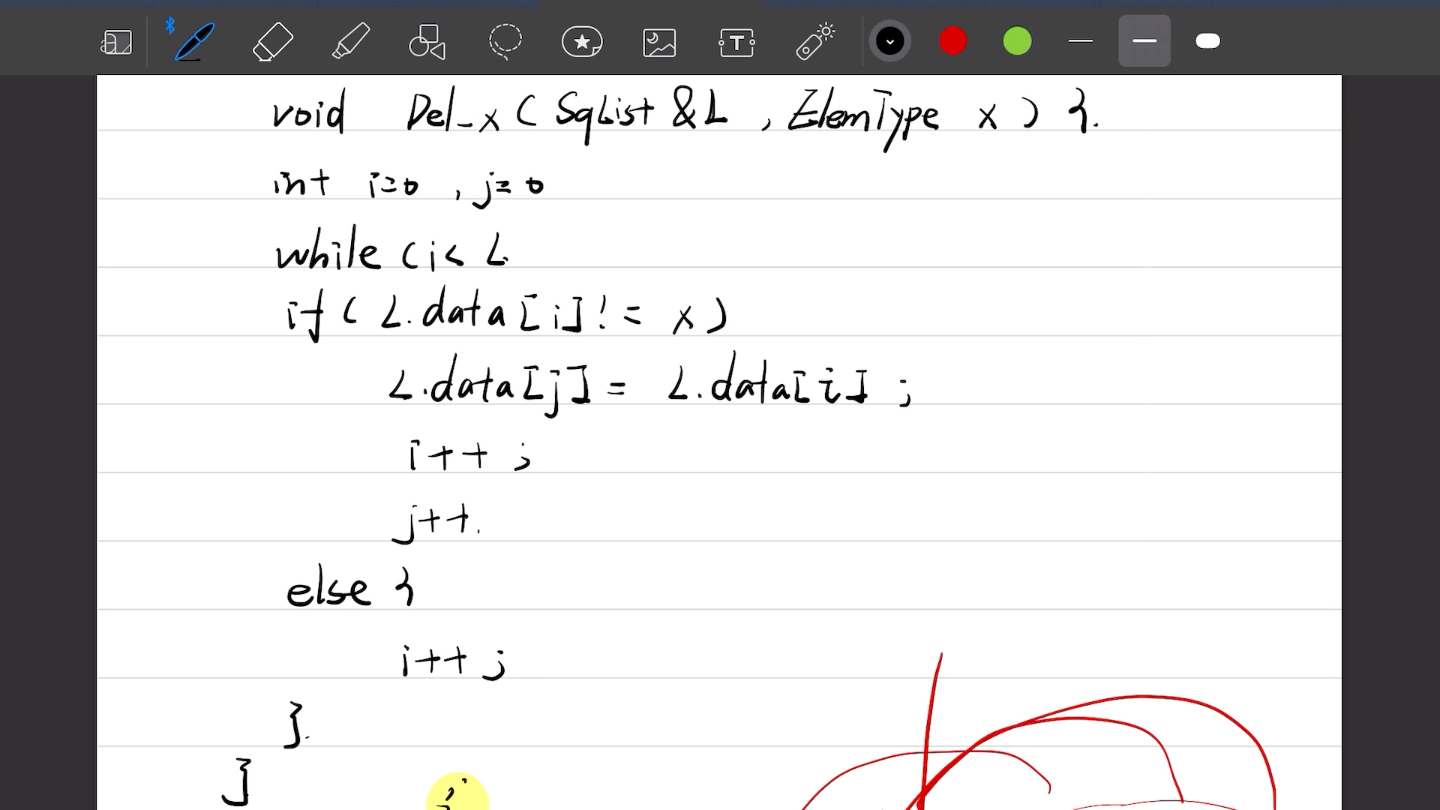 void Del_x ( SqList &L , ElemType x ) {.
int i=0 , j=0
while ( i< L
if ( L.data[i] != x )
L.data[j] = L.data[i] ;
i++ ;
j++.
else {
i++ ;
}.
}
i